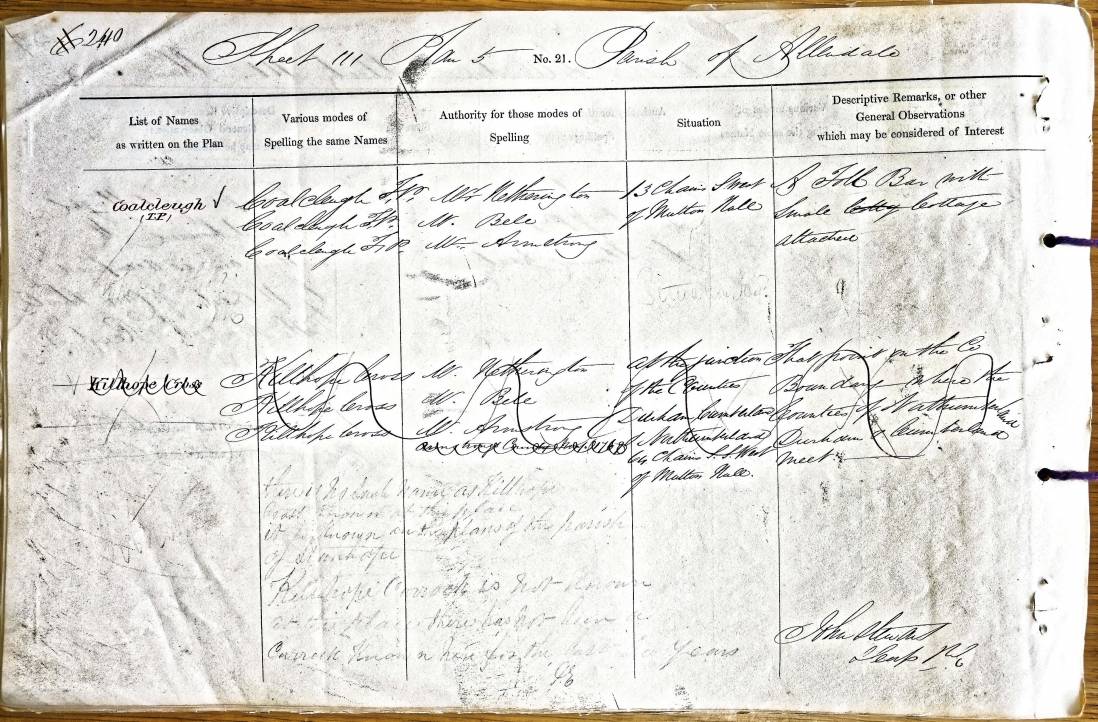 240
Sheet 111 Plan 5 No. 21. Parish of Allendale
List of Names
as written on the Plan
Various modes of
Spelling the same Names
Authority for those modes of
Spelling
Situation
Descriptive Remarks, or other
General Observations
which may be considered of Interest
Coalcleugh
(T.P.)
Coalcleugh T.P.
Coalcleugh T.P.
Coalcleugh T.P.
Mr. Netherington
Mr. Bell
Mr. Armstrong
13 Chains
of Mutton Hall
A Toll Bar with
Small Cottage
attached
Killhope Cross
Killhope Cross
Killhope Cross
Killhope Cross
Mr. Netherington
Mr. Bell
Mr. Armstrong
Armstrong's County Map 1768
At the junction
of the Counties
Durham Cumberland
Northumberland
64 Chains S.S. West
of Mutton Hall.
That point on the Co.
Boundary where the
Counties of Northumberland
Durham & Cumberland
meet
There is no such name as Killhope
Cross known at this place
it is known on the plans of the parish
of Stanhope
Killhope Currock is not known
at this place there has not been a
Currock known here for the last Years
John Stewart